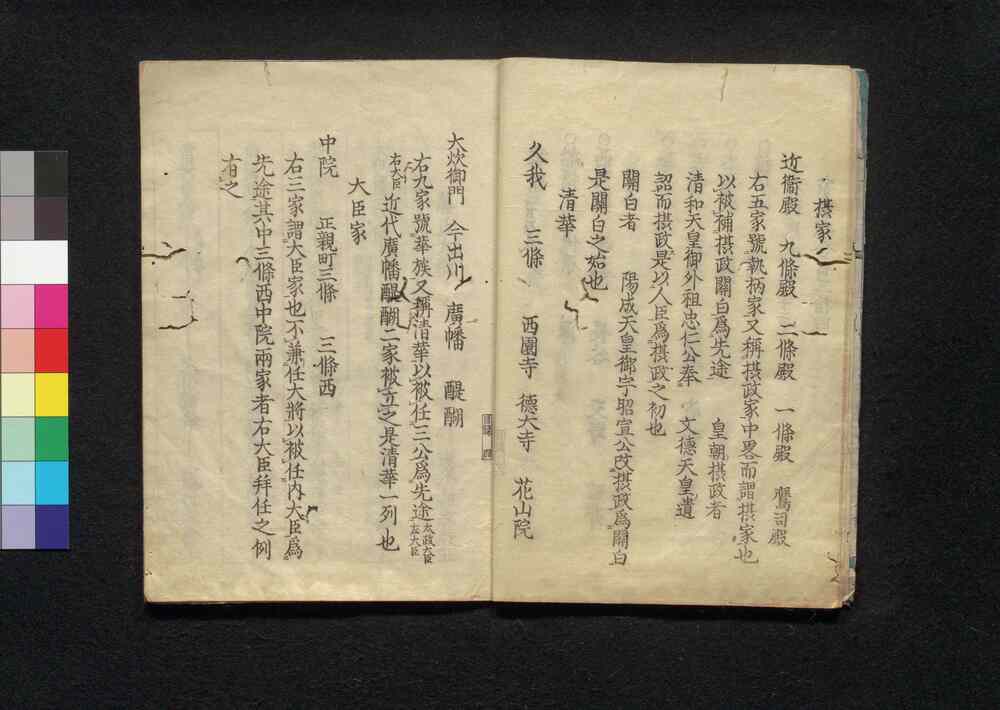 摂家
近衞殿 九條殿 二條殿 一條殿 鷹司殿
右五家號執柄家又稱摂政家中畧而謂摂家也
以被補摂政關白爲先途 皇朝摂政者
清和天皇御外祖忠仁公奉 文德天皇遺
詔而摂政是以人臣爲摂政之初也
關白者 陽成天皇御宇昭宣公改摂政爲關白
是關白之始也
清華
久我 三條 西園寺 德大寺 花山院
大炊御門 今出川 廣幡 醍醐
右九家號華族又稱清華以被任三公爲先途太政大臣左大臣
右大臣 近代廣幡醍醐二家被立之是清華一列也
大臣家
中院 正親町三條 三條西
右三家謂大臣家也不兼任大將以被任内大臣爲
先途其中三條西中院兩家者右大臣拜任之例
有之